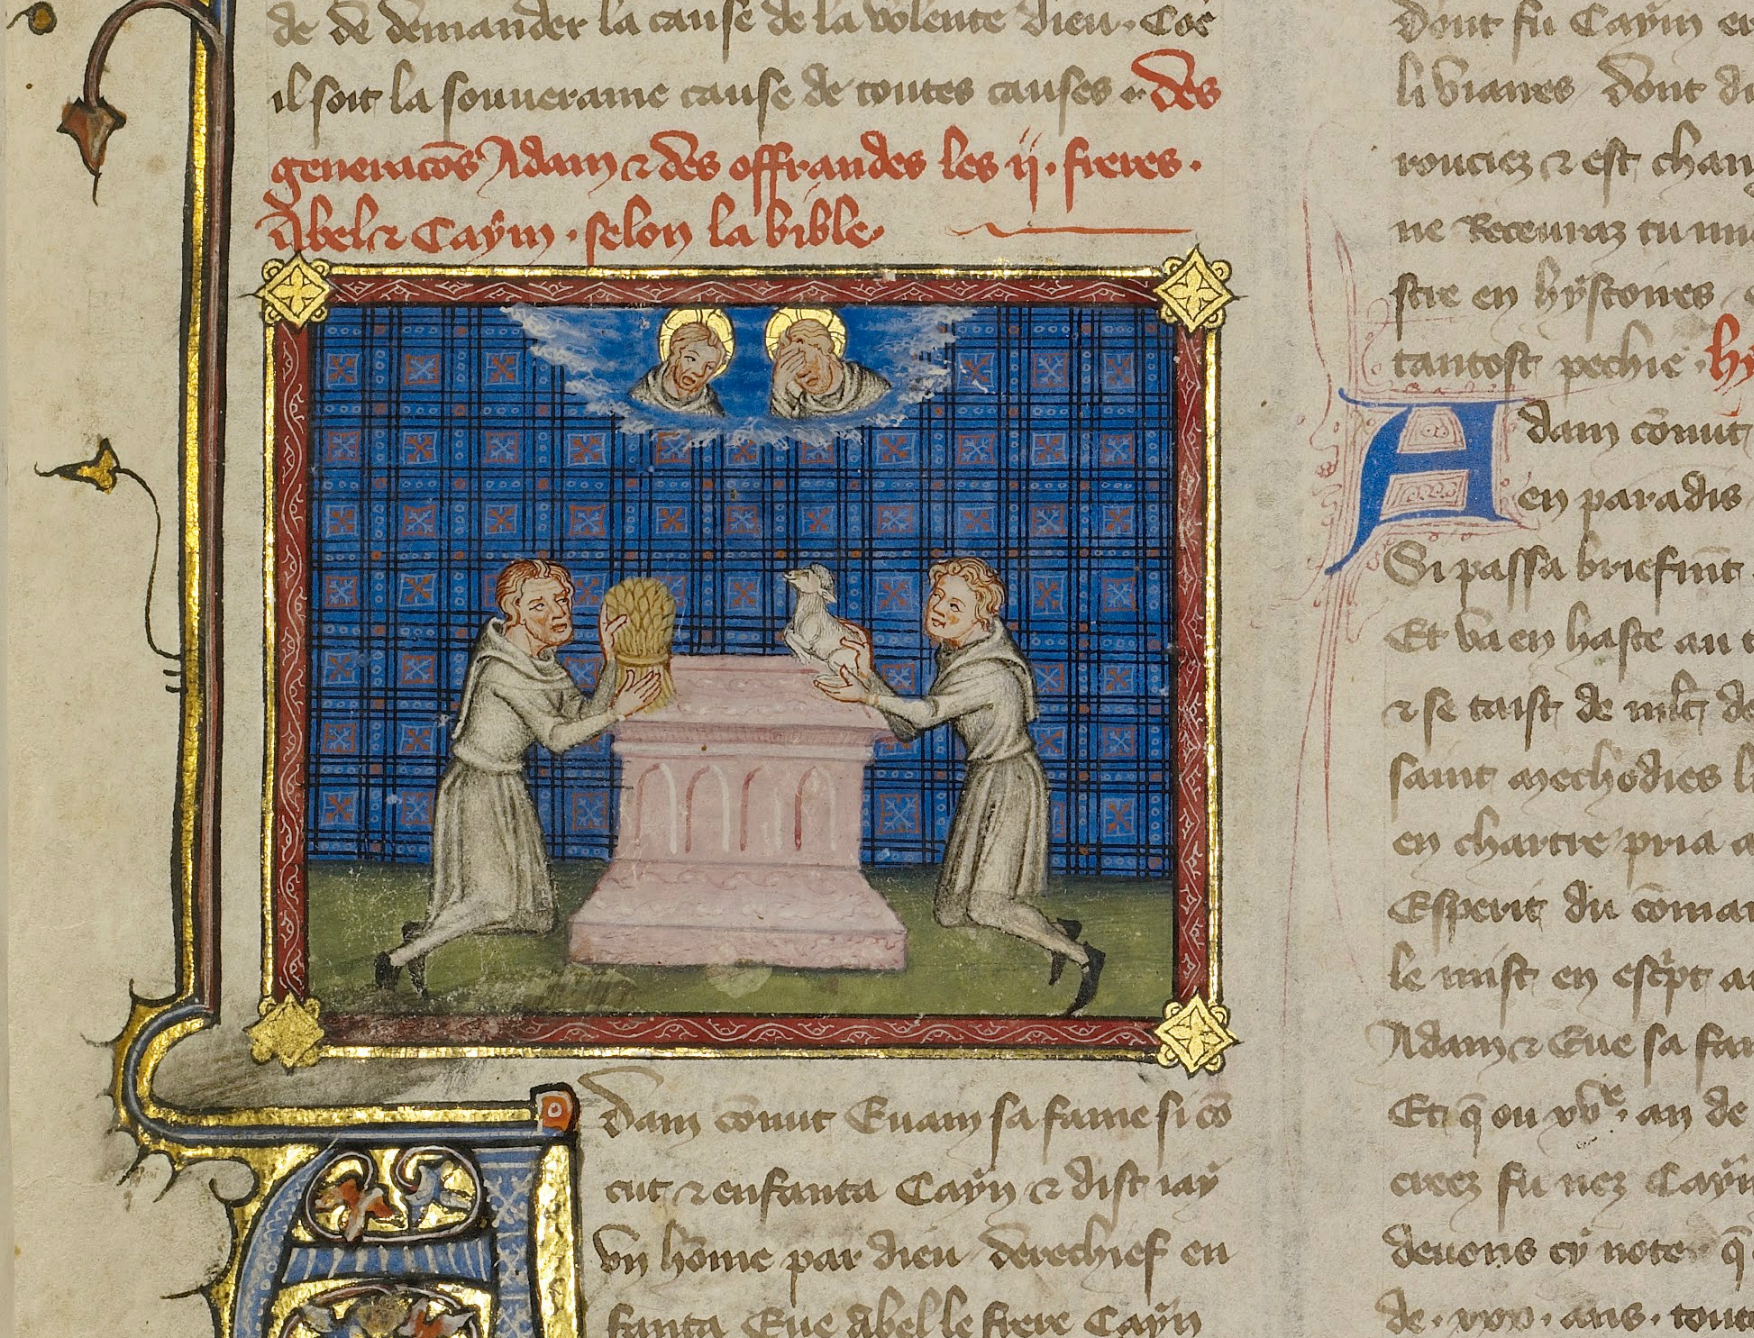 de de demander la cause de la volente dieu. Coe
il soit la souueraine cause de toutes causes .. des
generacōs Adam ⁊ des offrandes les ii. freres.
Abel ⁊ Cayin. selon la bible.
Adam cōnut Euam sa fame si cō
cut ⁊ enfanta Cayn ⁊ dist iay
vn hōme par dieu derechief en
fanta Eue abel le frere Cayn
dont fu Cayin en
li vianres dont di
rouciez ⁊ est chan
ne Receuraz tu mi
stre en hystoires
tantost pechie . hy
Adam cōnut
en paradis
Si passa briefmt
Et va en haste au
⁊ se taist de mlt de
saint methodies l
en chartre pria a
Esperit du cōman
le mist en escpt a
Adam ⁊ Eue sa fam
Et q̄ ou xve. an de
creez fu nez Cayn
deuons cy note q̄
de. xxx. ans. tout